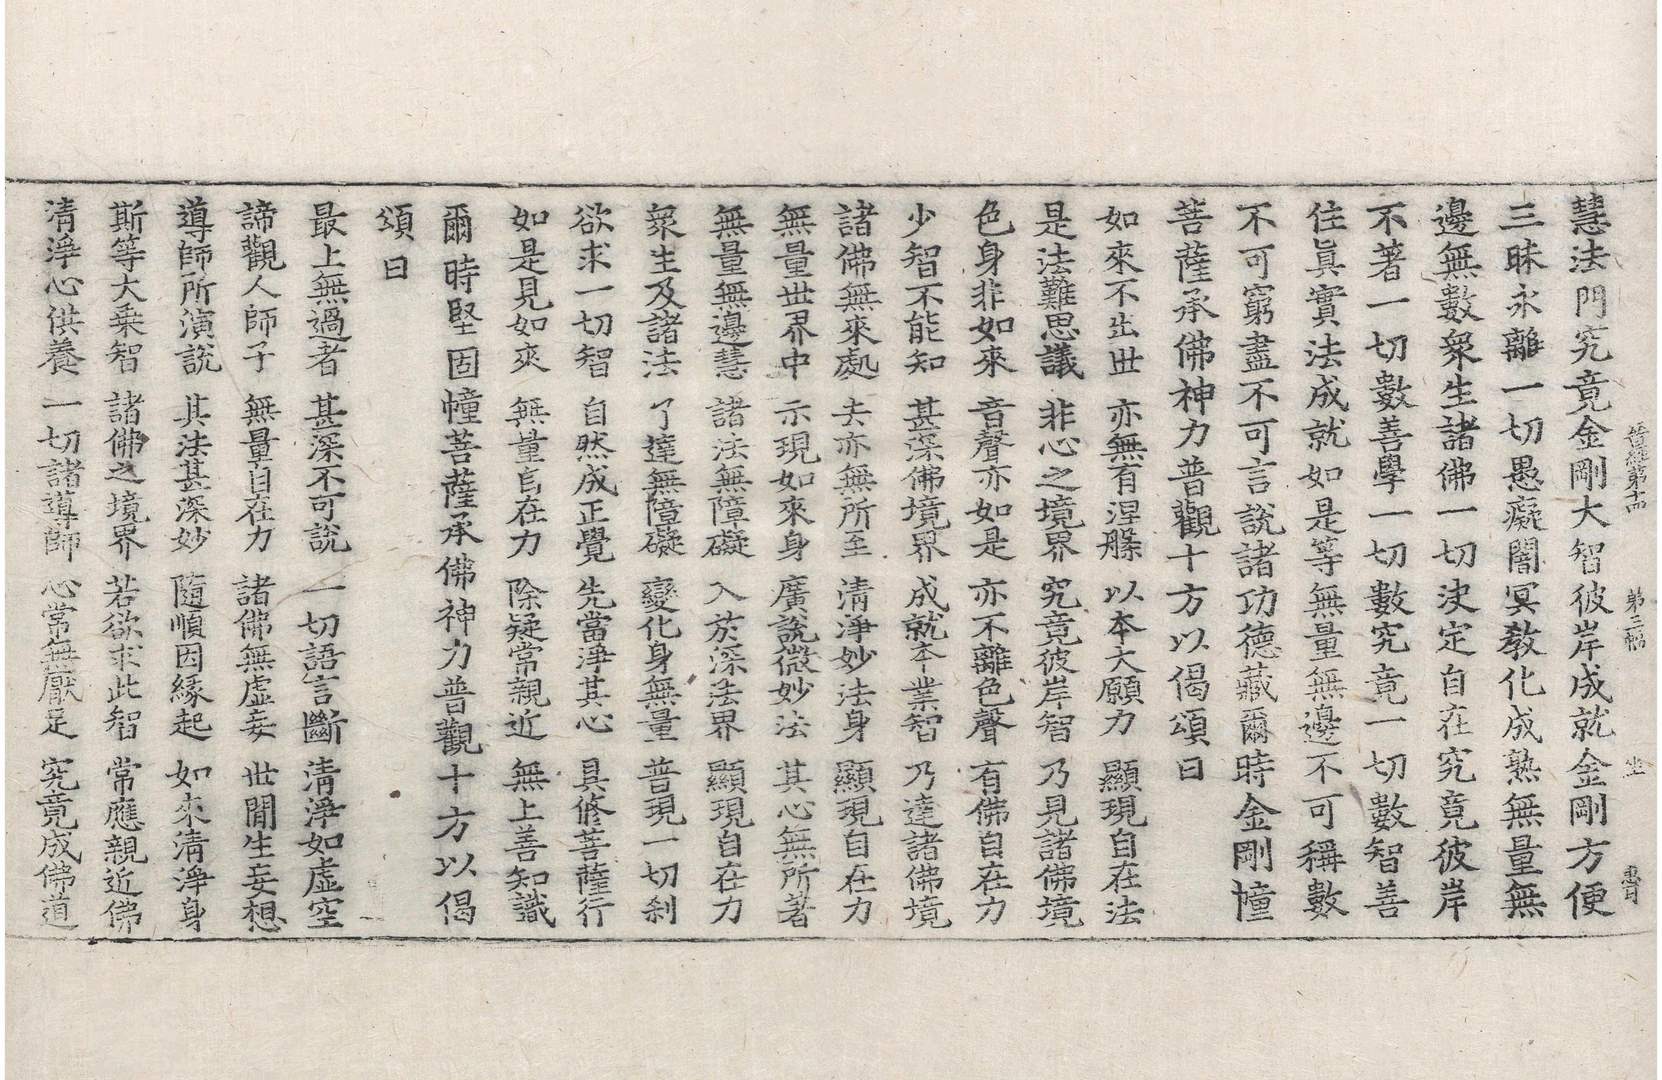 晉經第十四 第三幅 坐 惠
慧法門究竟金剛大智彼岸成就金剛方便
三昧永離一切愚癡闇冥教化成熟無量無
邊無數衆生諸佛一切決定自在究竟彼岸
不著一切數善學一切數究竟一切數智善
住眞實法成就如是等無量無邊不可稱數
不可窮盡不可言說諸功德藏爾時金剛幢
菩薩承佛神力普觀十方以偈頌曰
如來不出世 亦無有涅槃 以本大願力 顯現自在法
是法難思議 非心之境界 究竟彼岸智 乃見諸佛境
色身非如來 音聲亦如是 亦不離色聲 有佛自在力
少智不能知 甚深佛境界 成就本業智 乃達諸佛境
諸佛無來處 去亦無所至 清淨妙法身 顯現自在力
無量世界中 示現如來身 廣說微妙法 其心無所著
無量無邊慧 諸法無障礙 入於深法界 顯現自在力
衆生及諸法 了達無障礙 變化身無量 普現一切刹
欲求一切智 自然成正覺 先當淨其心 具修菩薩行
如是見如來 無量自在力 除疑常親近 無上善知識
爾時堅固幢菩薩承佛神力普觀十方以偈
頌曰
最上無過者 甚深不可說 一切語言斷 清淨如虛空
諦觀人師子 無量自在力 諸佛無虛妄 世間生妄想
導師所演說 其法甚深妙 隨順因緣起 如來清淨身
斯等大乘智 諸佛之境界 若欲求此智 常應親近佛
清淨心供養 一切諸導師 心常無厭足 究竟成佛道